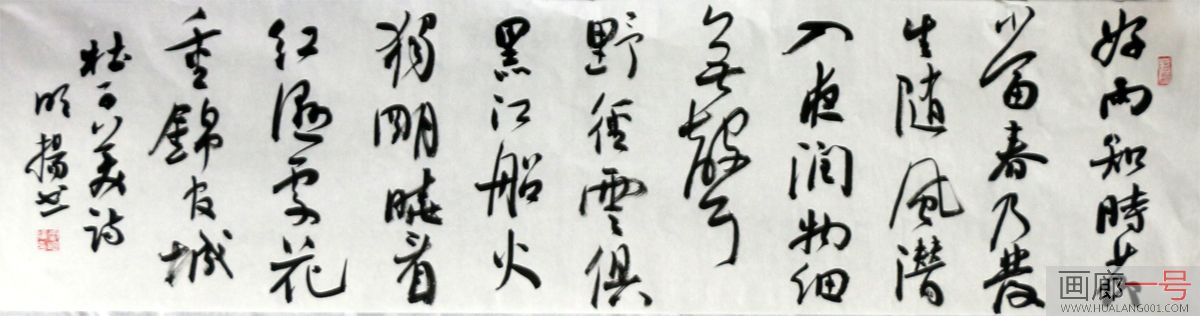 好雨知時節
當春乃發
生隨風潛
入夜润物细
無聲
野徑雲俱
黑江船火
獨明曉看
红濕處花
重錦官城
杜子美诗
明揚书
画廊一号
WWW.HUALANG001.COM